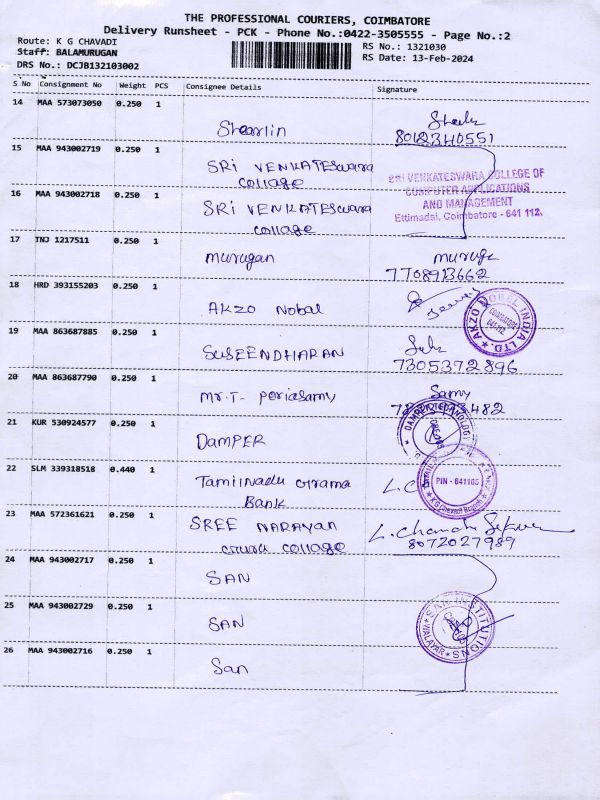 THE PROFESSIONAL COURIERS, COIMBATORE
Delivery Runsheet - PCK - Phone No.:0422-3505555 - Page No.:2
Route: K G CHAVADI
RS No.: 1321030
Staff: BALAMURUGAN
RS Date: 13-Feb-2024
DRS No.: DCJB132103002
S No Consignment No Weight PCS Consignee Details Signature
14 MAA 573073050 0.250 1
Shearlin
8012340551
15 MAA 943002719 0.250 1
SRi VENKATESwara
collage
SRI VENKATESWARA COLLEGE OF
COMPUTER APPLICATIONS
AND MANAGEMENT
Ettimadai, Coimbatore - 641 112.
16 MAA 943002718 0.250 1
SRi VENKATESwara
collage
17 TNJ 1217511 0.250 1
murugan
7708913662
18 HRD 393155203 0.250 1
AKZO Nobal
AKZO NOBEL INDIA LTD.
COIMBATORE
641 112
19 MAA 863687885 0.250 1
SUSEENDHARAN
7305372896
20 MAA 863687790 0.250 1
Mr.T- Periasamy
Samy
21 KUR 530924577 0.250 1
DAMPER
22 SLM 339318518 0.440 1
Tamilnadu Grama
Bank
L.C
PIN - 641105
K G Chavadi Branch
23 MAA 572361621 0.250 1
SREE NARAYAN
Guru collage
8072027989
24 MAA 943002717 0.250 1
SAN
25 MAA 943002729 0.250 1
SAN
SAN INSTITUTIONS
WALAYAR
26 MAA 943002716 0.250 1
San